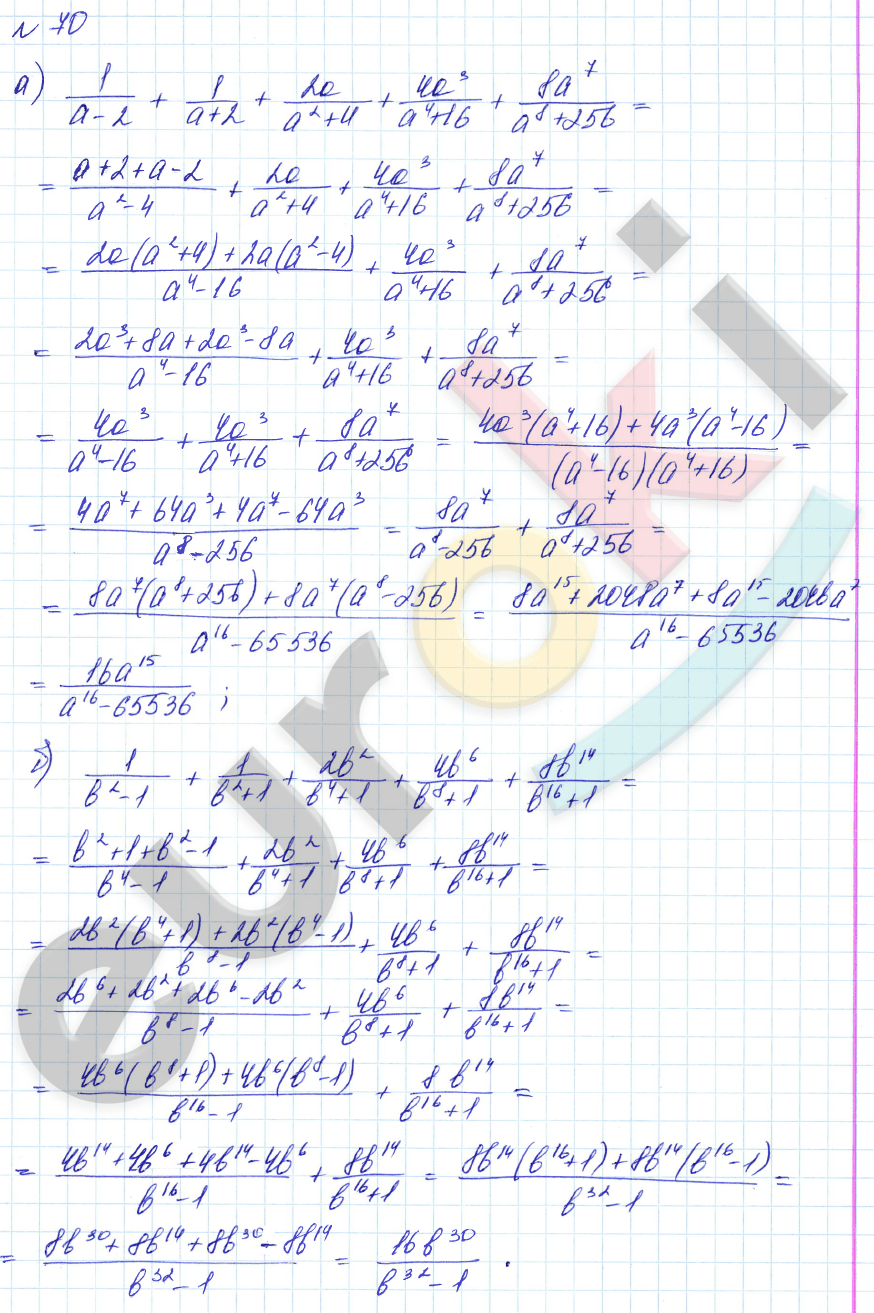 N 70
а) 1/(a-2) + 1/(a+2) + 2a/(a²+4) + 4a³/(a⁴+16) + 8a⁷/(a⁸+256) =
= (a+2+a-2)/(a²-4) + 2a/(a²+4) + 4a³/(a⁴+16) + 8a⁷/(a⁸+256) =
= (2a(a²+4)+2a(a²-4))/(a⁴-16) + 4a³/(a⁴+16) + 8a⁷/(a⁸+256) =
= (2a³+8a+2a³-8a)/(a⁴-16) + 4a³/(a⁴+16) + 8a⁷/(a⁸+256) =
= 4a³/(a⁴-16) + 4a³/(a⁴+16) + 8a⁷/(a⁸+256) = (4a³(a⁴+16)+4a³(a⁴-16))/((a⁴-16)(a⁴+16)) =
= (4a⁷+64a³+4a⁷-64a³)/(a⁸-256) = 8a⁷/(a⁸-256) + 8a⁷/(a⁸+256) =
= (8a⁷(a⁸+256)+8a⁷(a⁸-256))/(a¹⁶-65536) = (8a¹⁵+2048a⁷+8a¹⁵-2048a⁷)/(a¹⁶-65536)
= 16a¹⁵/(a¹⁶-65536) ;
б) 1/(b²-1) + 1/(b²+1) + 2b²/(b⁴+1) + 4b⁶/(b⁸+1) + 8b¹⁴/(b¹⁶+1) =
= (b²+1+b²-1)/(b⁴-1) + 2b²/(b⁴+1) + 4b⁶/(b⁸+1) + 8b¹⁴/(b¹⁶+1) =
= (2b²(b⁴+1)+2b²(b⁴-1))/(b⁸-1) + 4b⁶/(b⁸+1) + 8b¹⁴/(b¹⁶+1) =
= (2b⁶+2b²+2b⁶-2b²)/(b⁸-1) + 4b⁶/(b⁸+1) + 8b¹⁴/(b¹⁶+1) =
= (4b⁶(b⁸+1)+4b⁶(b⁸-1))/(b¹⁶-1) + 8b¹⁴/(b¹⁶+1) =
= (4b¹⁴+4b⁶+4b¹⁴-4b⁶)/(b¹⁶-1) + 8b¹⁴/(b¹⁶+1) = (8b¹⁴(b¹⁶+1)+8b¹⁴(b¹⁶-1))/(b³²-1) =
= (8b³⁰+8b¹⁴+8b³⁰-8b¹⁴)/(b³²-1) = 16b³⁰/(b³²-1) .
euroki